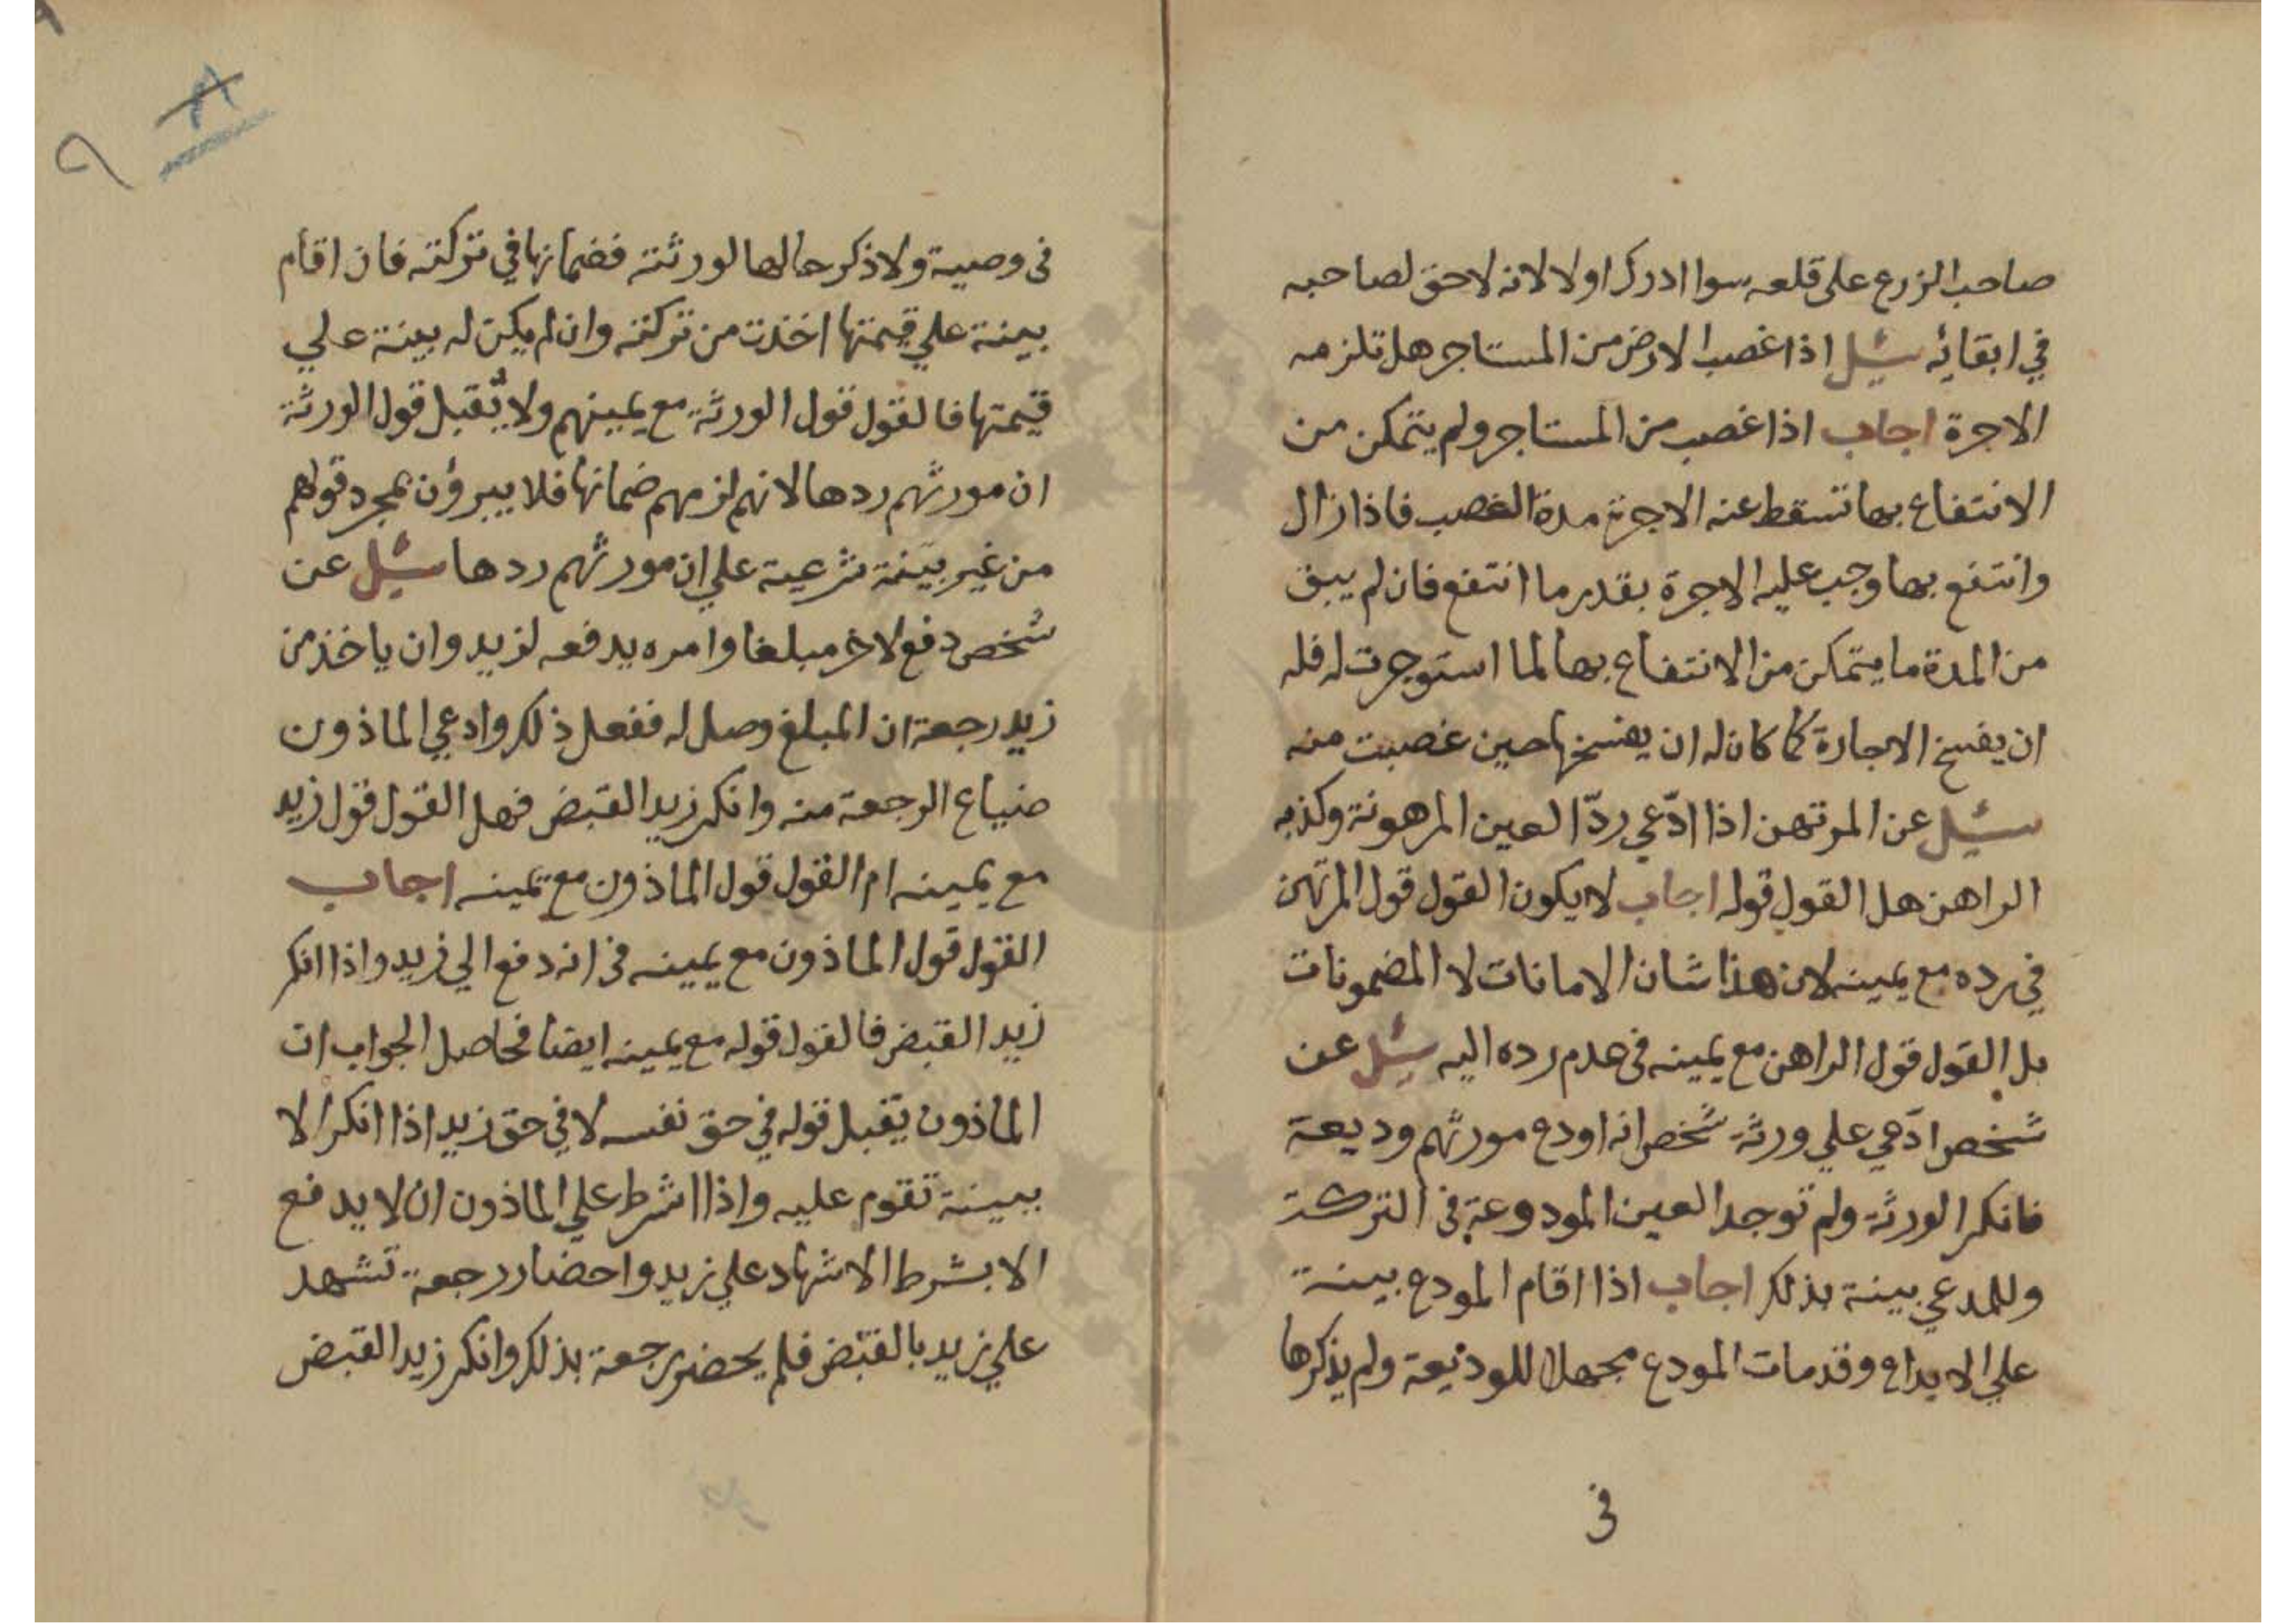 صاحب الزرع على قلعه سوا ادرك او لا لانه لا حق لصاحبه
في ابقائه سئل اذا غصب الارض من المستاجر هل تلزمه
الاجرة اجاب اذا غصب من المستاجر ولم يتمكن من
الانتفاع بها تسقط عنه الاجرة مدة الغصب فاذا زال
وانتفع بها وجب عليه الاجرة بقدر ما انتفع فان لم يبق
من المدة ما يتمكن من الانتفاع بها لما استوجرت له فله
ان يفسخ الاجارة كما كان له ان يفسخها حين غصبت منه
سئل عن المرتهن اذا ادّعي ردّ العين المرهونة وكذبه
الراهن هل القول قوله اجاب لا يكون القول قول المرتهن
في رده مع يمينه لان هذا شان الامانات لا المضمونات
بل القول قول الراهن مع يمينه في عدم رده اليه سئل عن
شخص ادّعي علي ورثة شخص انه اودع مورثهم وديعة
فانكر الورثة ولم توجد العين المودوعة في التركة
وللمدعي بينة بذلك اجاب اذا اقام المودع بينة
علي الايداع وقد مات المودع مجهلا للوديعة ولم يذكرها
في
٩
في وصية ولا ذكر حالها لورثته فضمانها في تركته فان اقام
بينة علي قيمتها اخذت من تركته وان لم يكن له بينة علي
قيمتها فالقول قول الورثة مع يمينهم ولا يُقبل قول الورثة
ان مورثهم ردها لانهم لزمهم ضمانها فلا يبرؤن بمجرد قولهم
من غير بينة شرعية علي ان مورثهم ردها سئل عن
شخص دفع لاخر مبلغا وامره يدفعه لزيد وان ياخذ من
زيد رجعة ان المبلغ وصل له ففعل ذلك وادعي الماذون
ضياع الرجعة منه وانكر زيد القبض فهل القول قول زيد
مع يمينه ام القول قول الماذون مع يمينه اجاب
القول قول الماذون مع يمينه في انه دفع الي زيد واذا انكر
زيد القبض فالقول قوله مع يمينه ايضا فحاصل الجواب ان
الماذون يقبل قوله في حق نفسه لا في حق زيد اذا انكر الا
ببينة تقوم عليه واذا اشرط علي الماذون ان لا يدفع
الا بشرط الاشهاد علي زيد واحضار رجعة تشهد
علي زيد بالقبض فلم يحضر رجعة بذلك وانكر زيد القبض